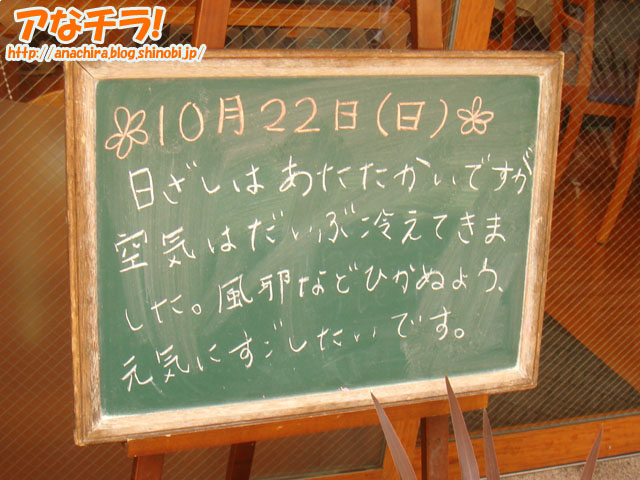 アなチラ!
http://anachira.blog.shinobi.jp/
10月22日(日)
日ざしはあたたかいですが
空気はだいぶ冷えてきま
した。風邪などひかぬよう、
元気にすごしたいです。